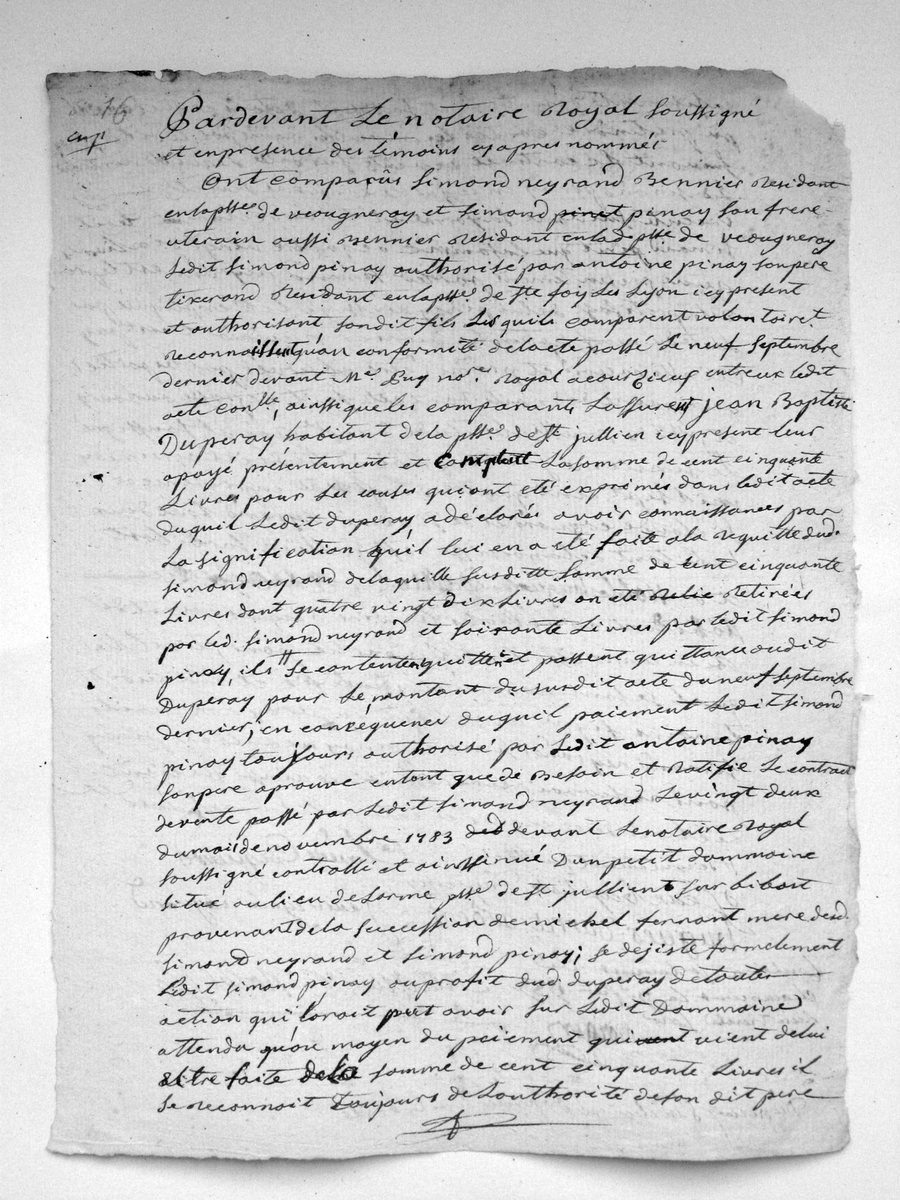 16
Pardevant Le notaire Royal Soussigné
et en presence des témoins cyapres nommés
Ont comparûs Simond neyrand Bennier Residant
en la psse. de veaugneray et Simond pinet pinay son frere
uterain aussi Bennier Residant en lad psse de veaugneray
Ledit Simond pinay authorisé par antoine pinay son pere
tixerand Residant en la psse. de Ste foy Les Lyon icy present
et authorisant sondit fils Lesquils comparent volontairet.
reconnaissent qu'an conformité de lacte passé Le neuf Septembre
dernier devant Me. nore. Royal a courzieux entreux ledit
acte conlle, ainssi que les comparants Lassurent jean Baptiste
Duperay habitant de la psse. de St. jullien icy present leur
apayé présentement et comptent La somme de cent cinquante
Livres pour Les causes qui ont été exprimés dans ledit acte
duquil Ledit duperay a déclarés avoir connaissances par
La signification qu'il lui en a été faite ala Requitte dud.
Simond neyrand delaquille susditte somme de cent cinquante
Livres dont quatre vingt dix Livres on été Retirées
par led. Simond neyrand et soixante Livres par ledit Simond
pinay, ils se contentent quittent et passent quittance audit
Duperay pour Le montant du susdit acte du neuf Septembre
dernier; en conséquence duquil paiement Ledit Simond
pinay toujours authorisé par Ledit antoine pinay
son pere aprouve entant que de Besoin et Ratifie Le contract
devente passé par Ledit Simond neyrand Le vingt deux
du mois de novembre 1783 devant Le notaire Royal
soussigné controllé et ainssinué D'un petit dommaine
situé au lieu de Lorme psse. de St. jullient sur bibost
provenant de la succession de michel ferrant mere desd.
Simond neyrand et Simond pinay; se dejiste formelement
Ledit Simond pinay au profit dud. duperay de toutes
action qu'il orait put avoir sur Ledit Dommaine
attendu qu'au moyen du paiement qui vient de lui
etre faite dela somme de cent cinquante Livres il
se reconnoit Toujours de Lauthorité de son dit pere